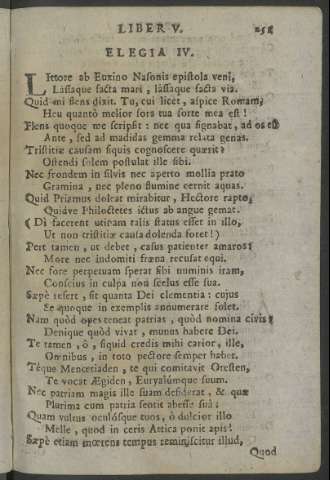 LIBER V. 251
ELEGIA IV.
LIttore ab Euxino Nasonis epistola veni,
Lassaque facta mari, lassaque facta via.
Quid mi flens dixit. Tu, cui licet, aspice Romam;
Heu quantò melior sors tua sorte mea est!
Flens quoque me scripsit: nec qua signabat, ad os est
Ante, sed ad madidas gemma relata genas.
Tristitiæ causam siquis cognoscere quærit?
Ostendi solem postulat ille sibi.
Nec frondem in silvis nec aperto mollia prato
Gramina, nec pleno flumine cernit aquas.
Quid Priamus doleat mirabitur, Hectore rapto,
Quidve Philoctetes ictus ab angue gemat.
(Di facerent utinam talis status esset in illo,
Ut non tristitiæ causa dolenda foret!)
Fert tamen, ut debet, casus patienter amaros:
More nec indomiti fræna recusat equi.
Nec fore perpetuam sperat sibi numinis iram,
Conscius in culpa non scelus esse sua.
Sæpè refert, sit quanta Dei clementia: cujus
Se quoque in exemplis annumerare solet.
Nam quòd opes teneat patrias, quòd nomina civis;
Denique quòd vivat, munus habere Dei.
Te tamen, ô, siquid credis mihi carior, ille,
Omnibus, in toto pectore semper habet.
Téque Menœtiaden, te qui comitavit Oresten,
Te vocat Ægiden, Euryalúmque suum.
Nec patriam magis ille suam desiderat, & quæ
Plurima cum patria sentit abesse suâ:
Quam vultus oculósque tuos, ô dulcior illo
Melle, quod in ceris Attica ponit apis!
Sæpè etiam mœrens tempus reminiscitur illud,
Quod